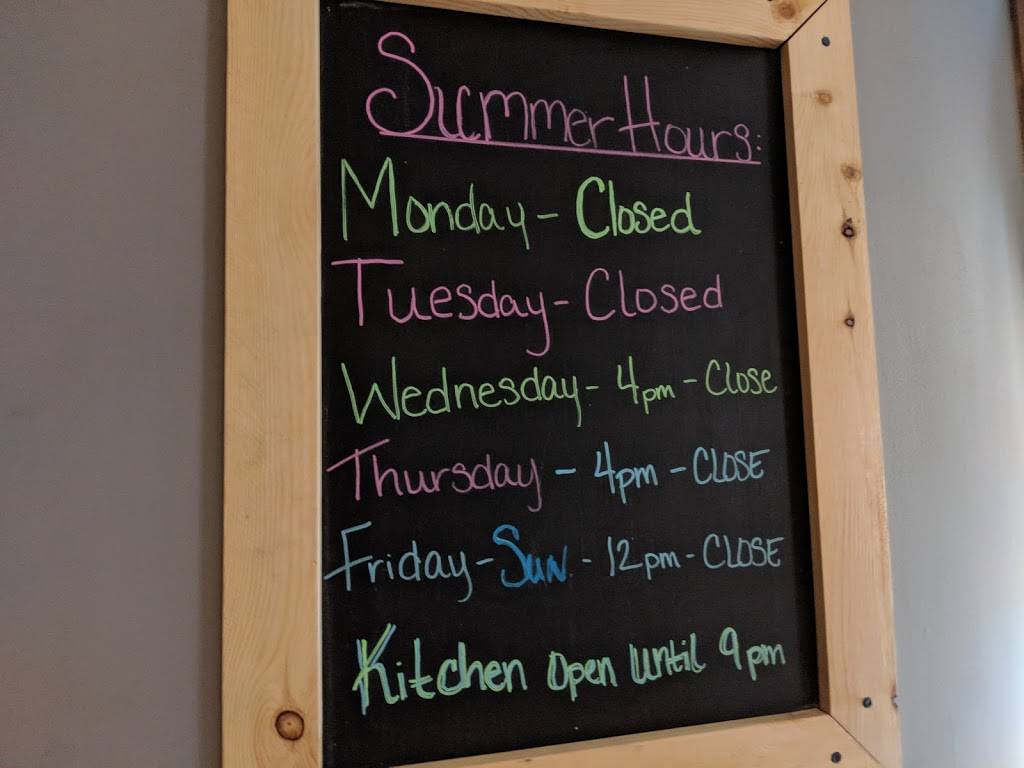 Summer Hours:
Monday - Closed
Tuesday - Closed
Wednesday - 4pm - Close
Thursday - 4pm - CLOSE
Friday - Sun. - 12pm - CLOSE
Kitchen Open Until 9pm